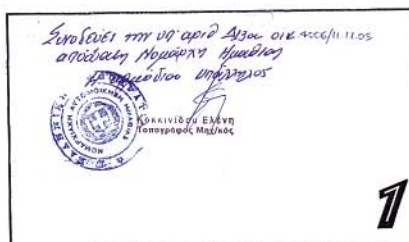 Συνοδεύει την υπ' αριθ Δ13α οικ 4006/11.11.05
απόφαση Νομάρχη Ημαθίας
Η αρμόδιος υπάλληλος
Κοκκινίδου Ελένη
Τοπογράφος Μηχ/κός
ΕΛΛΗΝΙΚΗ
ΝΟΜΑΡΧΙΑΚΗ ΑΥΤΟΔΙΟΙΚΗΣΗ ΗΜΑΘΙΑΣ
1